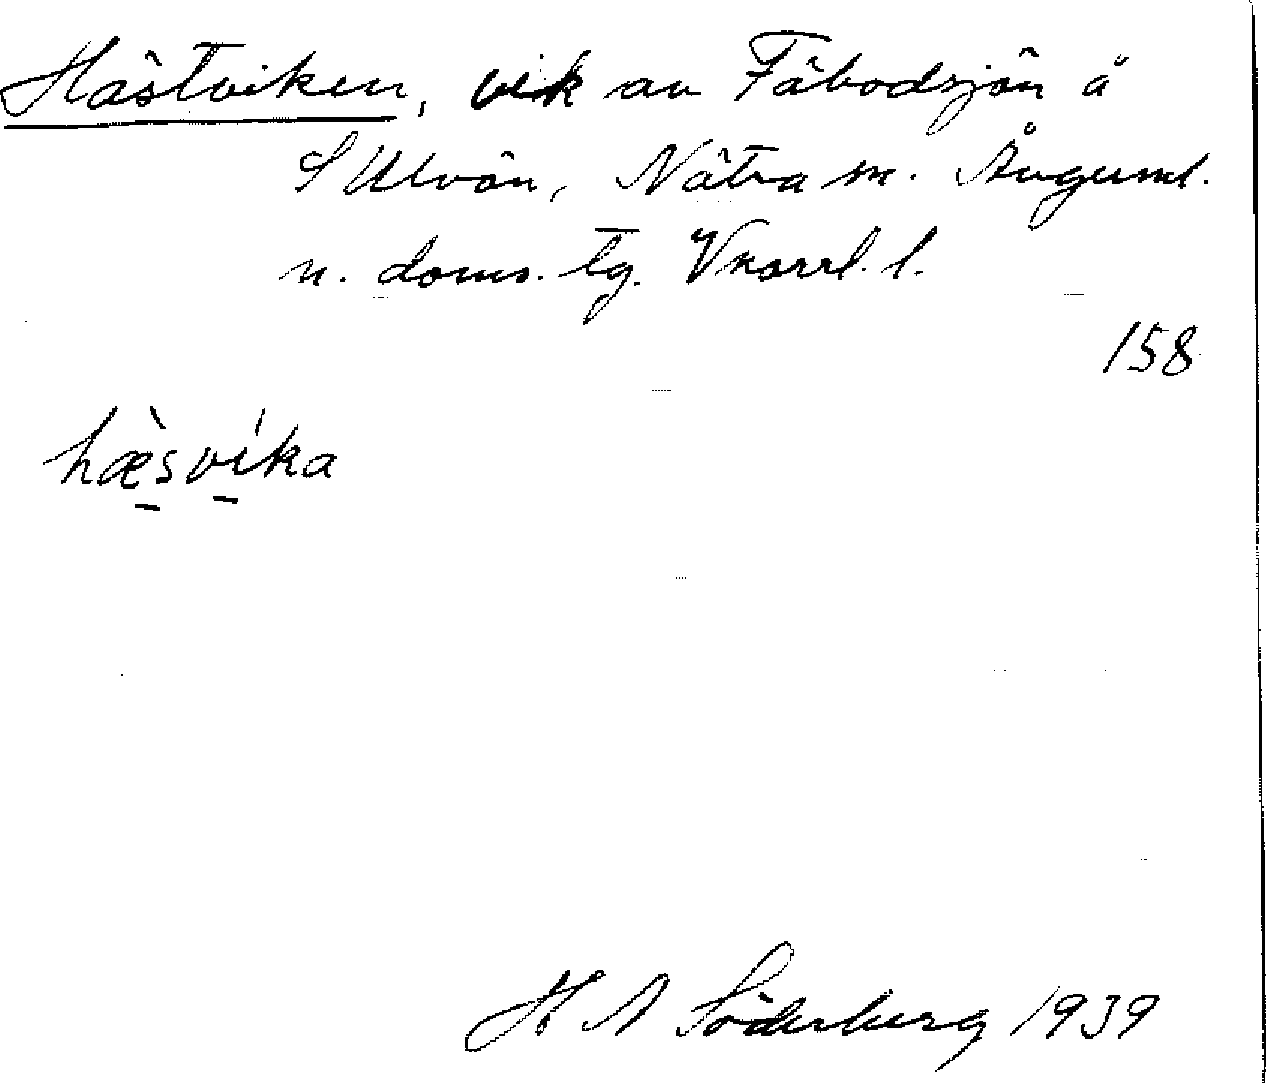 Hästviken, vik av Fäbodsjön å
S Ulvön, Nätra sn. Ångerml.
n. doms. tg. Vnorrl. l.
158
hæ̀svíka
H A Söderberg 1939